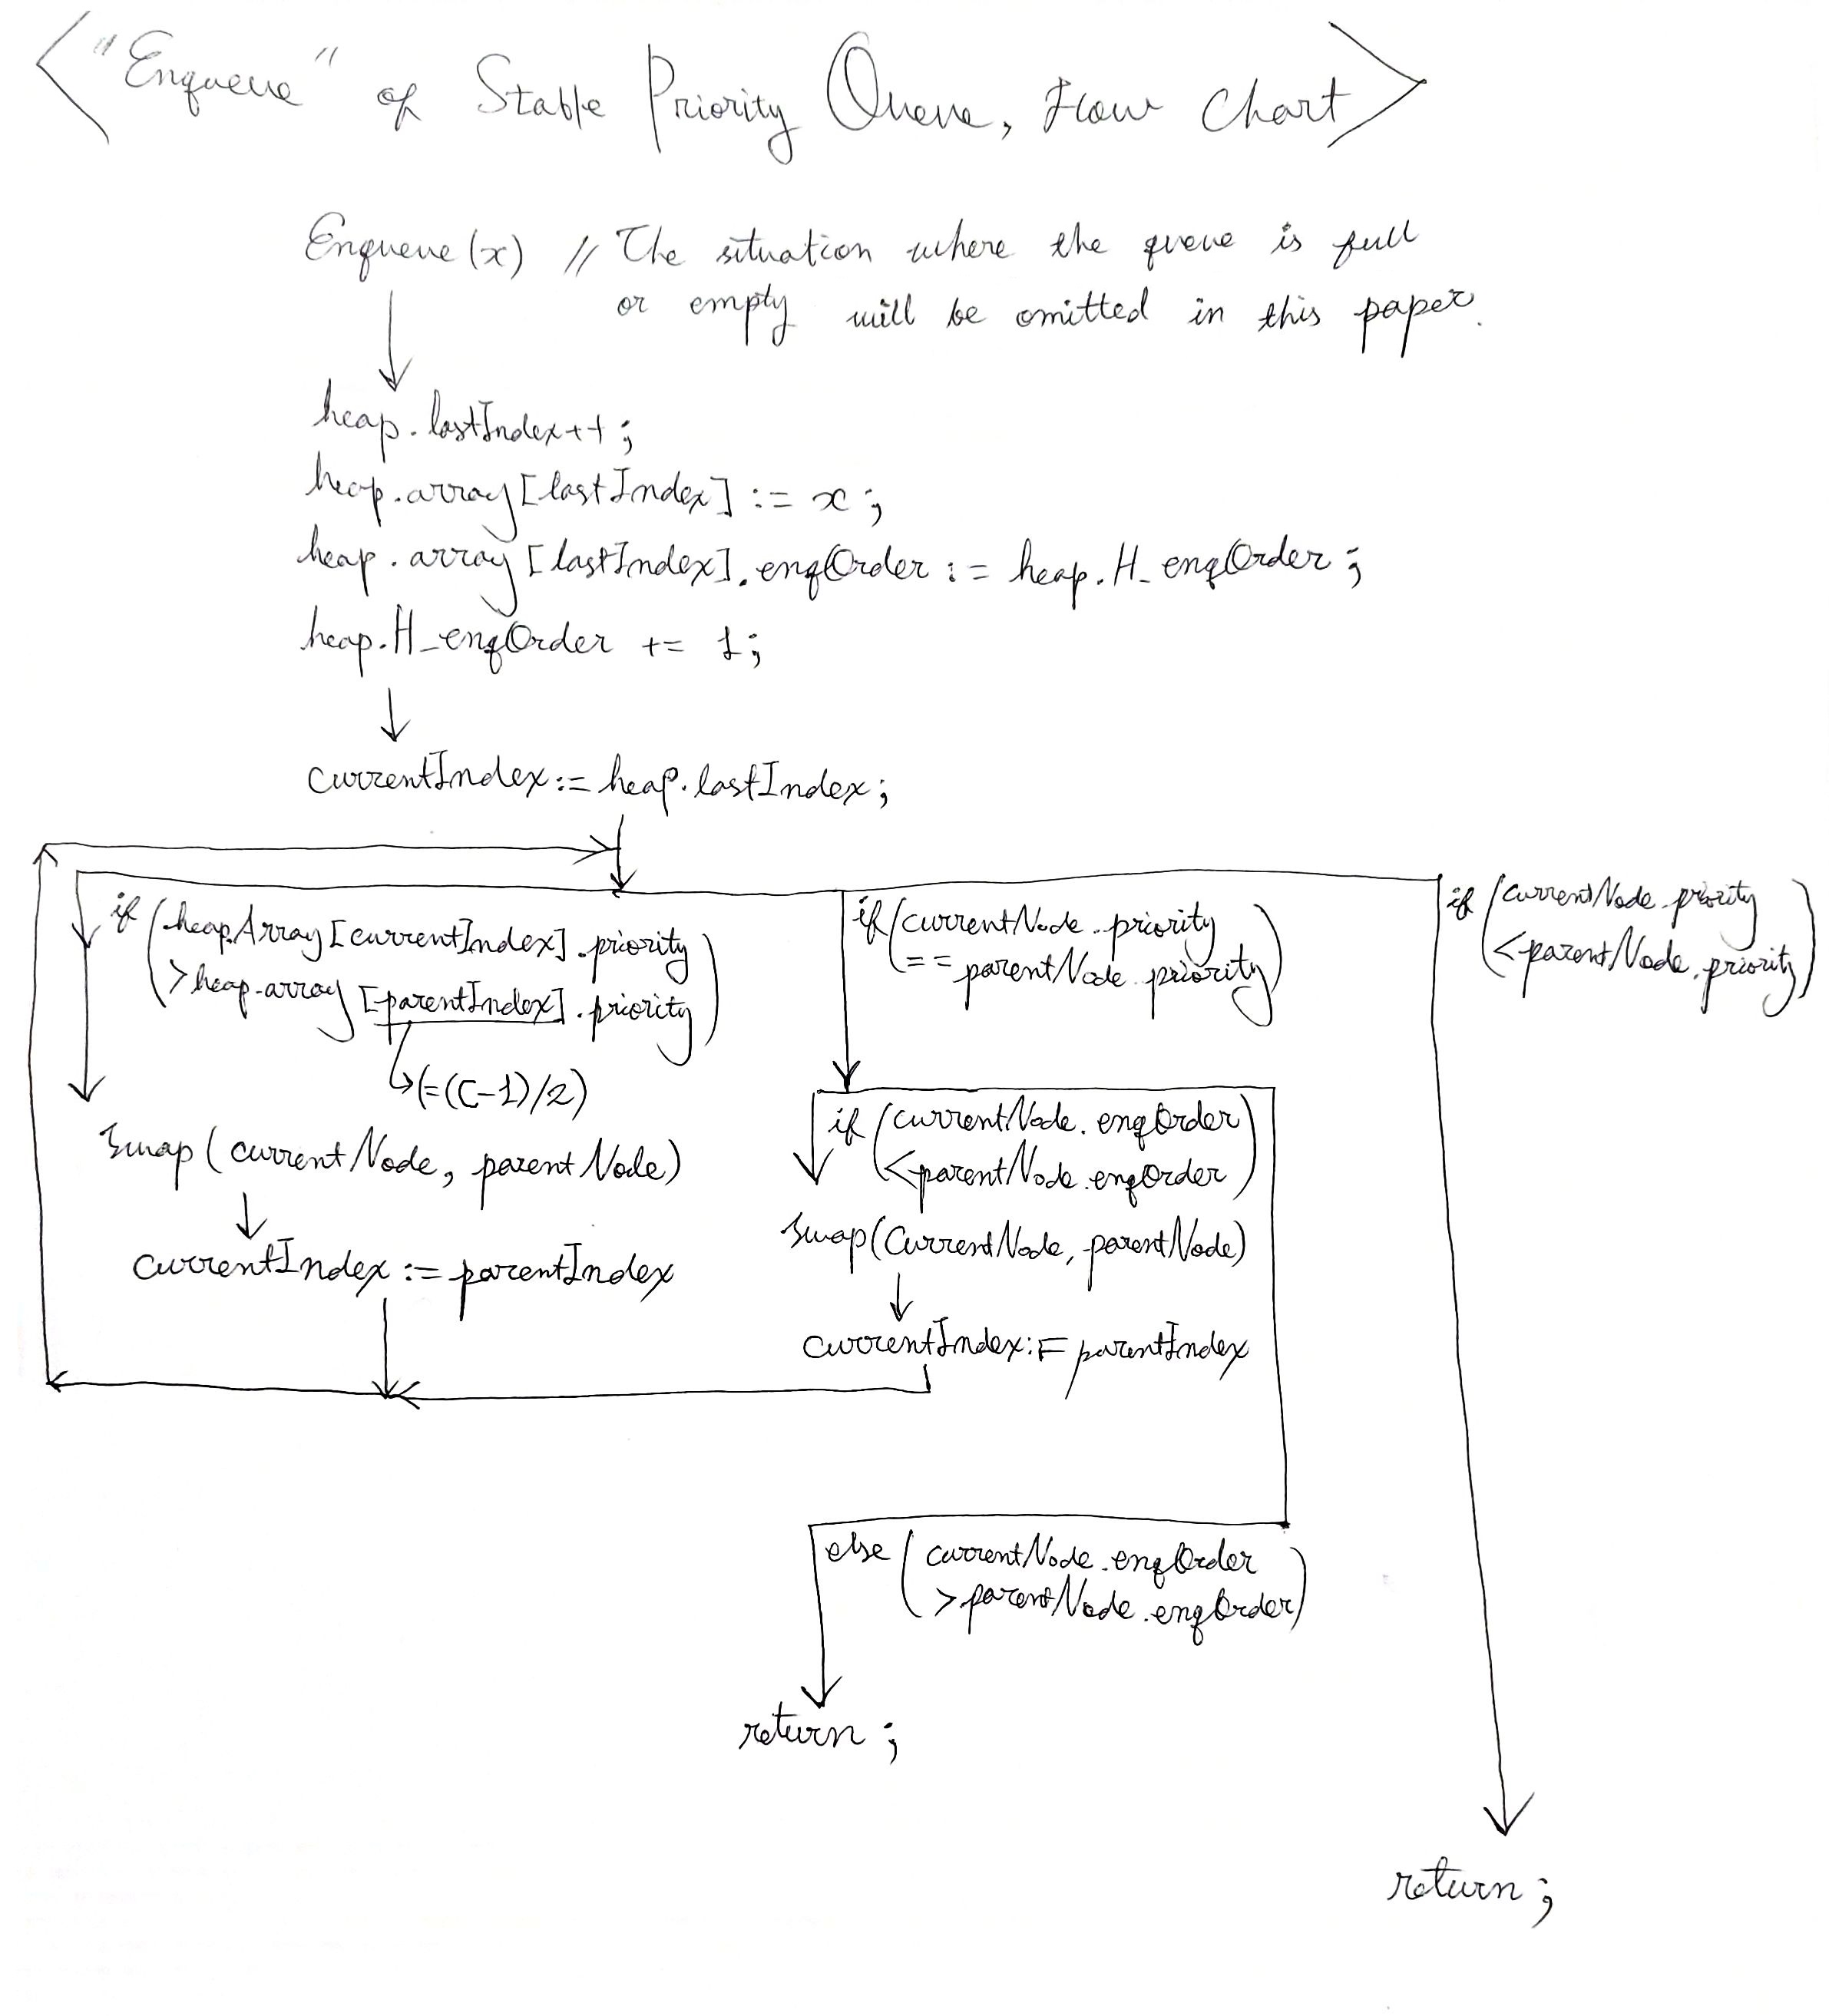 <"Enqueue" of Stable Priority Queue, Flow Chart>
Enqueue(x) // The situation where the queue is full
or empty will be omitted in this paper.
heap.lastIndex++;
heap.array[lastIndex] := x;
heap.array[lastIndex].enqOrder := heap.H_enqOrder;
heap.H_enqOrder += 1;
currentIndex := heap.lastIndex;
if (heap.Array[currentIndex].priority
>heap.array[parentIndex].priority)
(=(C-1)/2)
swap(currentNode, parentNode)
currentIndex := parentIndex
if (currentNode.priority
==parentNode.priority)
if (currentNode.enqOrder
<parentNode.enqOrder)
swap(CurrentNode, parentNode)
currentIndex := parentIndex
else (currentNode.enqOrder
>parentNode.enqOrder)
return;
if (currentNode.priority
<parentNode.priority)
return;